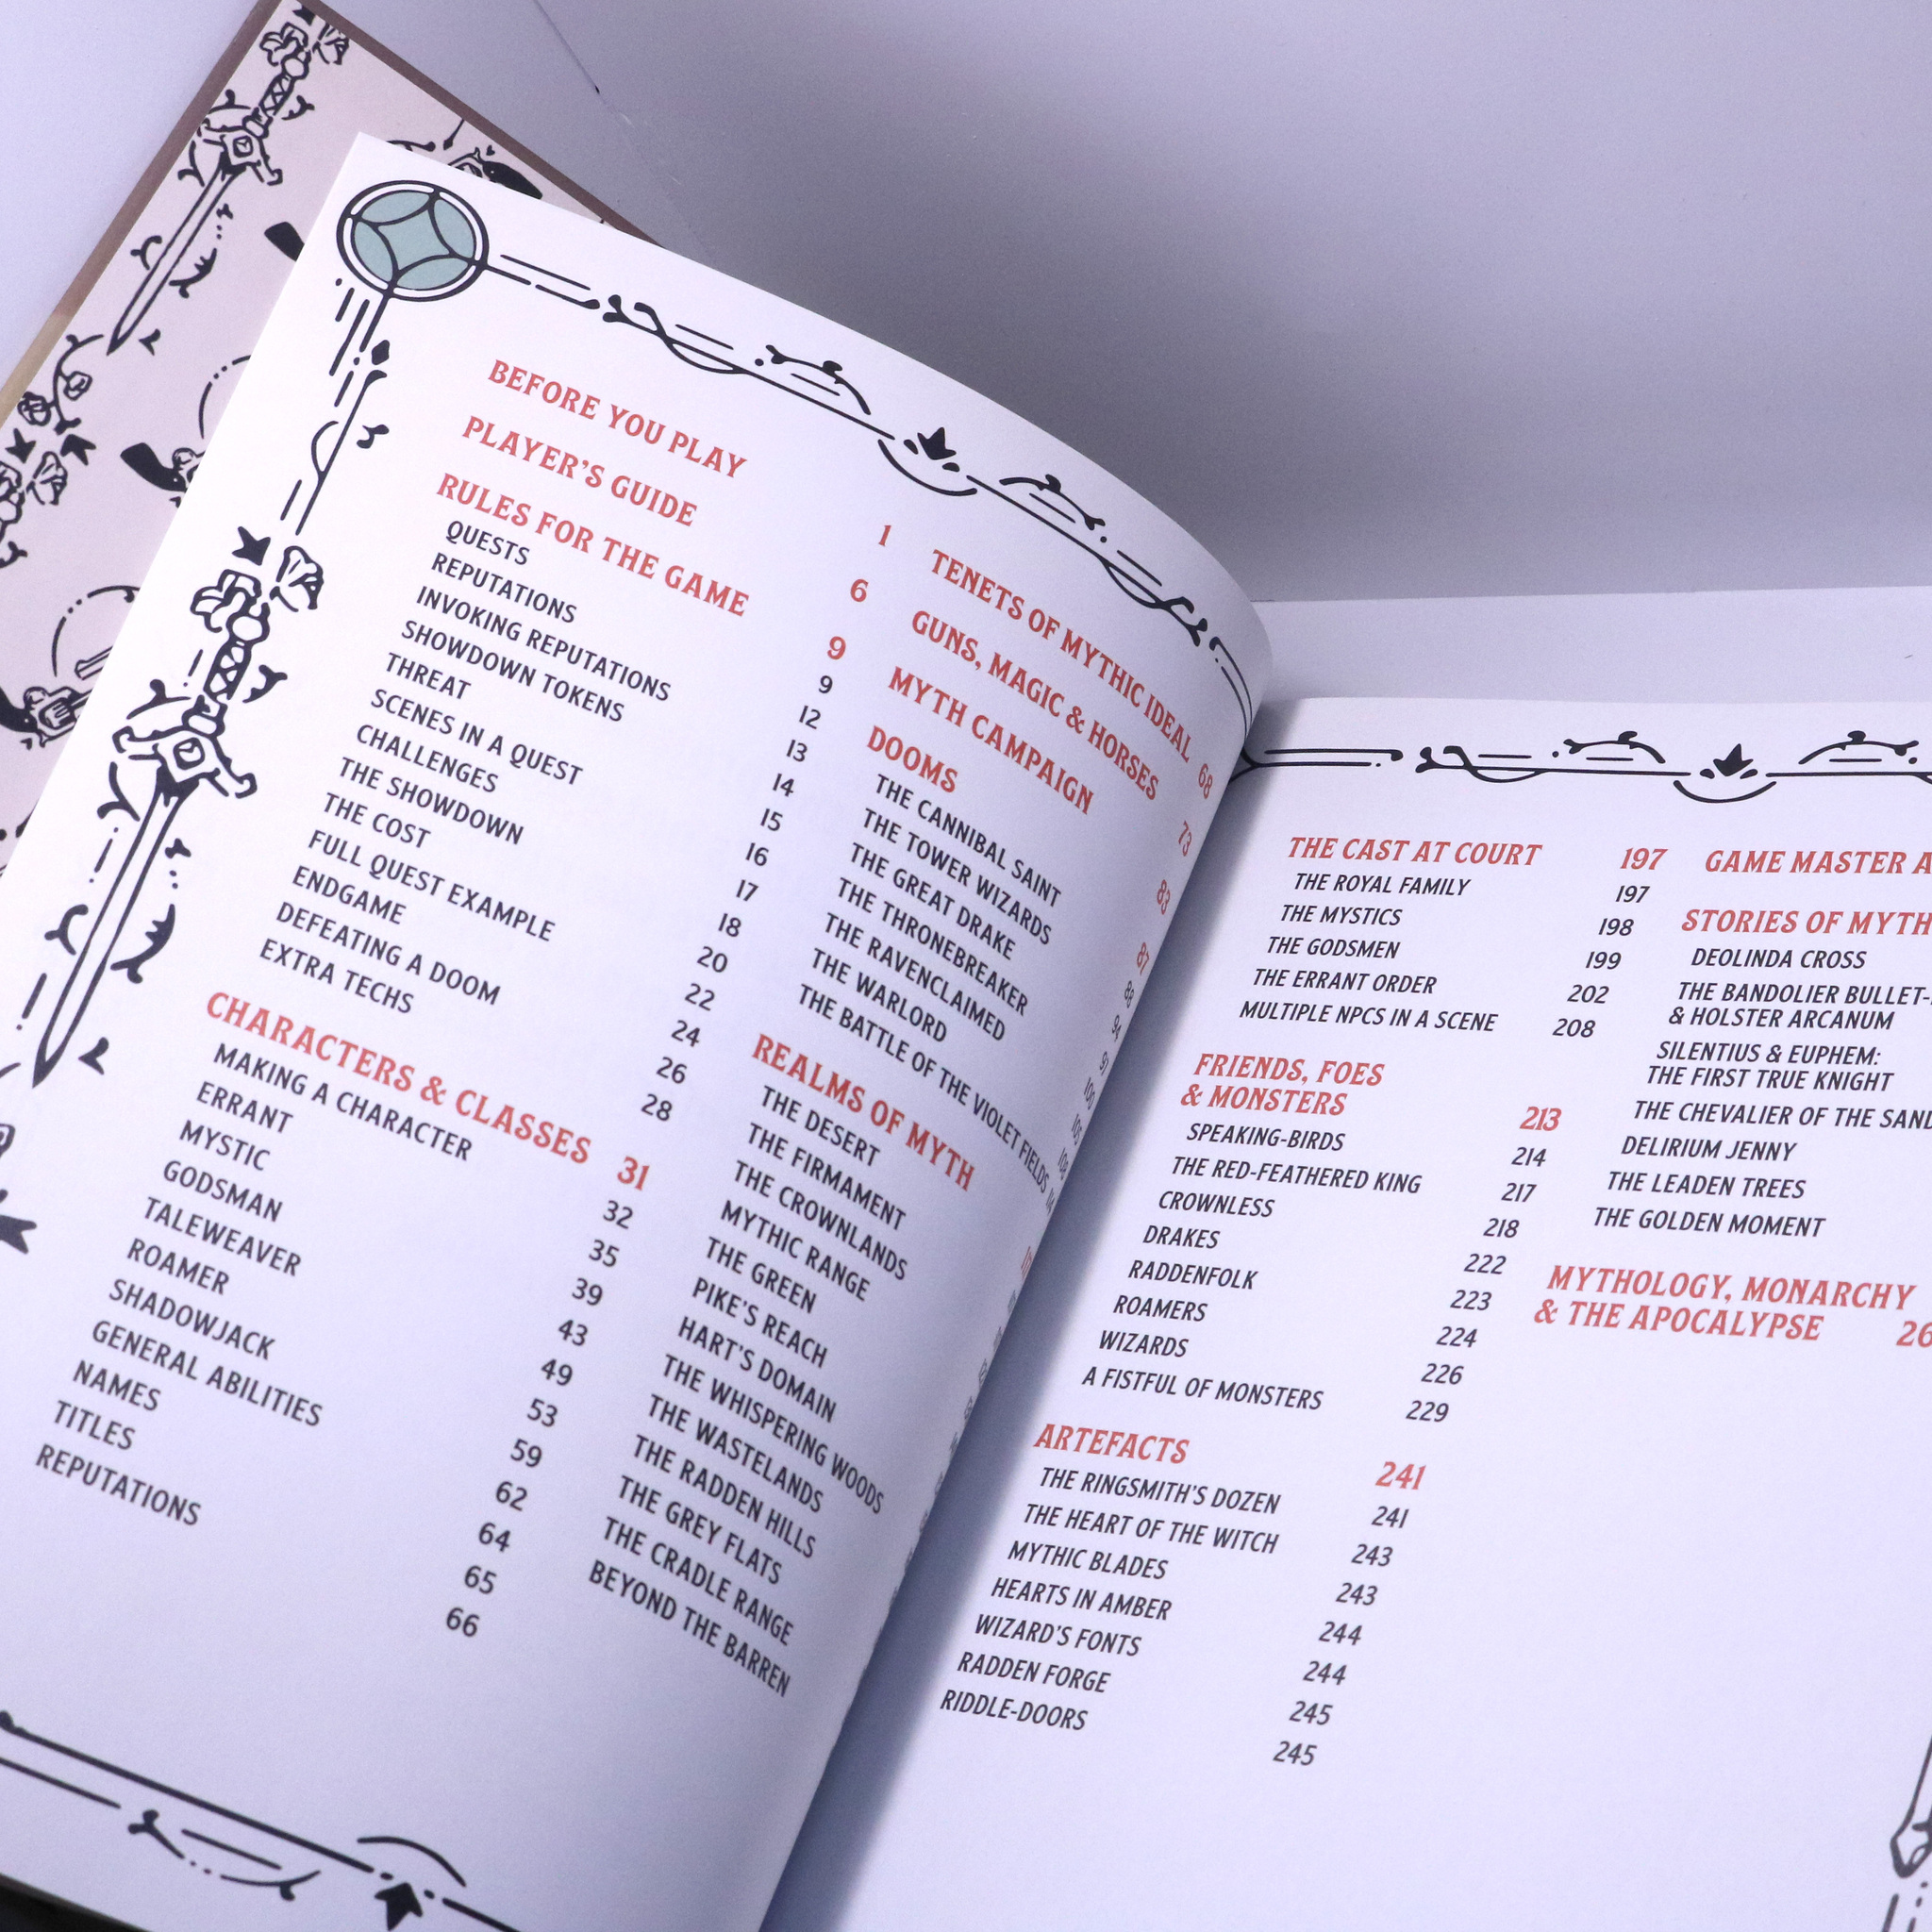 BEFORE YOU PLAY 1
PLAYER'S GUIDE 6
RULES FOR THE GAME 9
QUESTS 9
REPUTATIONS 12
INVOKING REPUTATIONS 13
SHOWDOWN TOKENS 14
THREAT 15
SCENES IN A QUEST 16
CHALLENGES 17
THE SHOWDOWN 18
THE COST 20
FULL QUEST EXAMPLE 22
ENDGAME 24
DEFEATING A DOOM 26
EXTRA TECHS 28
CHARACTERS & CLASSES 31
MAKING A CHARACTER 32
ERRANT 35
MYSTIC 39
GODSMAN 43
TALEWEAVER 49
ROAMER 53
SHADOWJACK 59
GENERAL ABILITIES 62
NAMES 64
TITLES 65
REPUTATIONS 66
TENETS OF MYTHIC IDEAL 68
GUNS, MAGIC & HORSES 73
MYTH CAMPAIGN 83
DOOMS 87
THE CANNIBAL SAINT 88
THE TOWER WIZARDS 94
THE GREAT DRAKE 97
THE THRONEBREAKER 100
THE RAVENCLAIMED 105
THE WARLORD
THE BATTLE OF THE VIOLET FIELDS
REALMS OF MYTH
THE DESERT
THE FIRMAMENT
THE CROWNLANDS
MYTHIC RANGE
THE GREEN
PIKE'S REACH
HART'S DOMAIN
THE WHISPERING WOODS
THE WASTELANDS
THE RADDEN HILLS
THE GREY FLATS
THE CRADLE RANGE
BEYOND THE BARREN
THE CAST AT COURT 197
THE ROYAL FAMILY 197
THE MYSTICS 198
THE GODSMEN 199
THE ERRANT ORDER 202
MULTIPLE NPCS IN A SCENE 208
FRIENDS, FOES
& MONSTERS 213
SPEAKING-BIRDS 214
THE RED-FEATHERED KING 217
CROWNLESS 218
DRAKES 222
RADDENFOLK 223
ROAMERS 224
WIZARDS 226
A FISTFUL OF MONSTERS 229
ARTEFACTS 241
THE RINGSMITH'S DOZEN 241
THE HEART OF THE WITCH 243
MYTHIC BLADES 243
HEARTS IN AMBER 244
WIZARD'S FONTS 244
RADDEN FORGE 245
RIDDLE-DOORS 245
GAME MASTER A
STORIES OF MYTH
DEOLINDA CROSS
THE BANDOLIER BULLET-
& HOLSTER ARCANUM
SILENTIUS & EUPHEM:
THE FIRST TRUE KNIGHT
THE CHEVALIER OF THE SAND
DELIRIUM JENNY
THE LEADEN TREES
THE GOLDEN MOMENT
MYTHOLOGY, MONARCHY
& THE APOCALYPSE 26